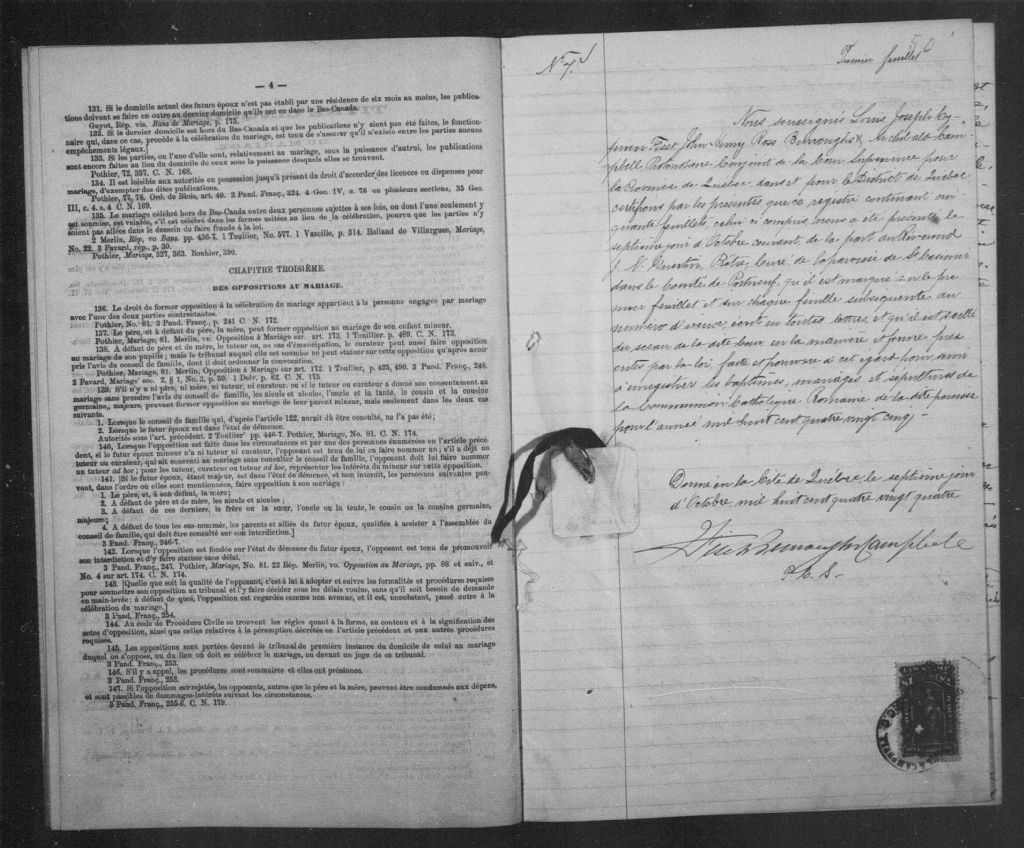 — 4 —
131. Si le domicile actuel des futurs époux n'est pas établi par une résidence de six mois au moins, les publica-
tions doivent se faire en outre au dernier domicile qu'ils ont eu dans le Bas-Canada.
Guyot, Rép. vis. Bans de Mariage, p. 175.
132. Si le dernier domicile est hors du Bas-Canada et que les publications n'y aient pas été faites, le fonction-
naire qui, dans ce cas, procède à la célébration du mariage, est tenu de s'assurer qu'il n'existe entre les parties aucuns
empêchements légaux.]
133. Si les parties, ou l'une d'elle, sont, relativement au mariage, sous la puissance d'autrui, les publications
sont encore faites au lieu du domicile de ceux sous la puissance desquels elles se trouvent.
Pothier, 72, 357. C. N. 168.
134. Il est loisible aux autorités en possession jusqu'à présent du droit d'accorder des licences ou dispenses pour
mariage, d'exempter des dites publications.
Pothier, 77, 78. Ord. de Blois, art. 40. 2 Pand. Franç. 324. 4 Geo. IV, c. 76 en plusieurs sections, 35 Geo.
III, c. 4. s. 4 C. N. 169.
135. Le mariage célébré hors du Bas-Canda entre deux personnes sujettes à ses lois, ou dont l'une seulement y
est soumise, est valable, s'il est célébré dans les formes usitées au lieu de la célébration, pourvu que les parties n'y
soient pas allées dans le dessein de faire fraude à la loi.
2 Merlin, Rép, vo Bans. pp. 436-7. 1 Toullier, No. 577. 1 Vazeille, p. 314. Rolland de Villargues, Mariage,
No. 22. 3 Favard, rép., p. 30.
Pothier, Mariage, 327, 363. Bouhier, 390.
CHAPITRE TROISIÈME.
DES OPPOSITIONS AU MARIAGE.
136. Le droit de former opposition à la célébration du mariage appartient à la personne engagée par mariage
avec l'une des deux parties contractantes.
Pothier, No. 81. 3 Pand. Franç., p. 241 C. N. 172.
137. Le père, et à défaut du père, la mère, peut former opposition au mariage de son enfant mineur.
Pothier, Mariage, 81. Merlin, vo. Opposition à Mariage sur. art. 173. 1 Touillier. p. 489. C. N. 173.
138. A défaut de père et de mère, le tuteur, ou, au cas d'émancipation, le curateur peut aussi faire opposition
au mariage de son pupille; mais le tribunal auquel elle est soumise ne peut statuer sur cette opposition qu'après avoir
pris l'avis du conseil de famille, dont il doit ordonner la convocation.
Pothier, Mariage, 81. Merlin, Opposition à Mariage sur art. 172. 1 Toullier, p. 425, 490. 3 Pand. Franç., 248.
2 Favard, Mariage sec. 2, § 1, No. 5, p. 59; 1 Delv. p. 62. C. N. 175
139. S'il n'y a ni père, ni mère, ni tuteur, ni curateur, ou si le tuteur ou curateur a donné son consentement au
mariage sans prendre l'avis du conseil de famille, les aïeuls et aïeules, l'oncle et la tante, le cousin et la cousine
germains, majeurs, peuvent former opposition au mariage de leur parent mineur, mais seulement dans les deux cas
suivants.
1. Lorsque le conseil de famille qui, d'après l'article 122, aurait dû être consulté, ne l'a pas été;
2. Lorsque le futur époux est dans l'état de démence.
Autorités sous l'art. précédent. 2 Toullier pp. 446-7. Pothier, Mariage, No. 81. C. N. 174.
140. Lorsque l'opposition est faite dans les circonstances et par une des personnes énumérées en l'article précé-
dent, si le futur époux mineur n'a ni tuteur ni curateur, l'opposant est tenu de lui en faire nommer un; s'il a déjà un
tuteur ou curateur, qui ait consenti au mariage sans consulter le conseil de famille, l'opposant doit lui faire nommer
un tuteur ad hoc; pour les tuteur, curateur ou tuteur ad hoc, représenter les intérêts du mineur sur cette opposition.
141. [Si le futur époux, étant majeur, est dans l'état de démence, et non interdit, les personnes suivantes peu-
vent, dans l'ordre où elles sont mentionnées, faire opposition à son mariage:
1. Le père, et, à son défaut, la mère;
2. A défaut de père et de mère, les aïeuls et aïeules;
3. A défaut de ces derniers, le frère ou la sœur, l'oncle ou la tante, le cousin ou la cousine germains,
majeurs;
4. A défaut de tous les sus-nommés, les parents et alliés du futur époux, qualifiés à assister à l'assemblée du
conseil de famille, qui doit être consulté sur son interdiction.]
3 Pand. Franç., 246-7.
142. Lorsque l'opposition est fondée sur l'état de démence du futur époux, l'opposant est tenu de promouvoir
son interdiction et d'y faire statuer sans délai.
3 Pand. Franç., 247. Pothier, Mariage, No. 81. 22 Rép. Merlin, vo. Opposition au Mariage, pp. 88 et suiv., et
No. 4 sur art. 174. C. N. 174.
143. [Quelle que soit la qualité de l'opposant, c'est à lui à adopter et suivre les formalités et procédures requises
pour soumettre son opposition au tribunal et l'y faire décider sous les délais voulus, sans qu'il soit besoin de demande
en main-levée; à défaut de quoi, l'opposition est regardée comme non avenue, et il est, nonobstant, passé outre à la
célébration du mariage.]
3 Pand. Franç., 254.
144. Au code de Procédure Civile se trouvent les règles quant à la forme, au contenu et à la signification des
actes d'opposition, ainsi que celles relatives à la péremption décrétée en l'article précédent et aux autres procédures
requises.
145. Les oppositions sont portées devant le tribunal de première instance du domicile de celui au mariage
duquel on s'oppose, ou du lieu où doit se célébrer le mariage, ou devant un juge de ce tribunal.
3 Pand. Franç., 253.
146. S'il y a appel, les procédures sont sommaires et elles ont préséance.
3 Pand. Franç., 253.
147. Si l'opposition est rejetée, les opposants, autres que le père et la mère, peuvent être condamnés aux dépens,
et sont passibles de dommages-intérêts suivant les circonstances.
3 Pand. Franç., 255-6. C. N. 179.
No. 7.
Premier feuillet
Nous soussignés Louis Joseph Cy-
prien Fiset, John Henry Ross Burroughs & Archibald Cam-
pbell Protonotaire Conjoint de la Cour Supérieure pour
la Province de Québec, dans et pour le District de Québec
certifions par les présentes que ce registre contenant cin
quante feuillets, celui ci compris, nous a été présenté le
septième jour d'Octobre courant de la part du Révérend
Ptre, Curé, de la paroisse de St. Casimir
dans le Comté de Portneuf, qu'il est marqué sur le pre
mier feuillet et sur chaque feuille subséquente du
numéro d'iceux, écrit en toutes lettres, et qu'il est scellé
du sceau de la dite Cour en la manière et forme pres
crites par la loi, faite et pourvue à cet égard pour servir
d'enregistrer les baptêmes, mariages, et sépultures de
la Communion Catholique Romaine de la dite paroisse
pour l'année mil huit cent quatre vingt cinq.
Donné en la Cité de Québec, le septième jour
d'Octobre, mil huit cent quatre vingt quatre
Fiset Burroughs Campbell
P. C. S.